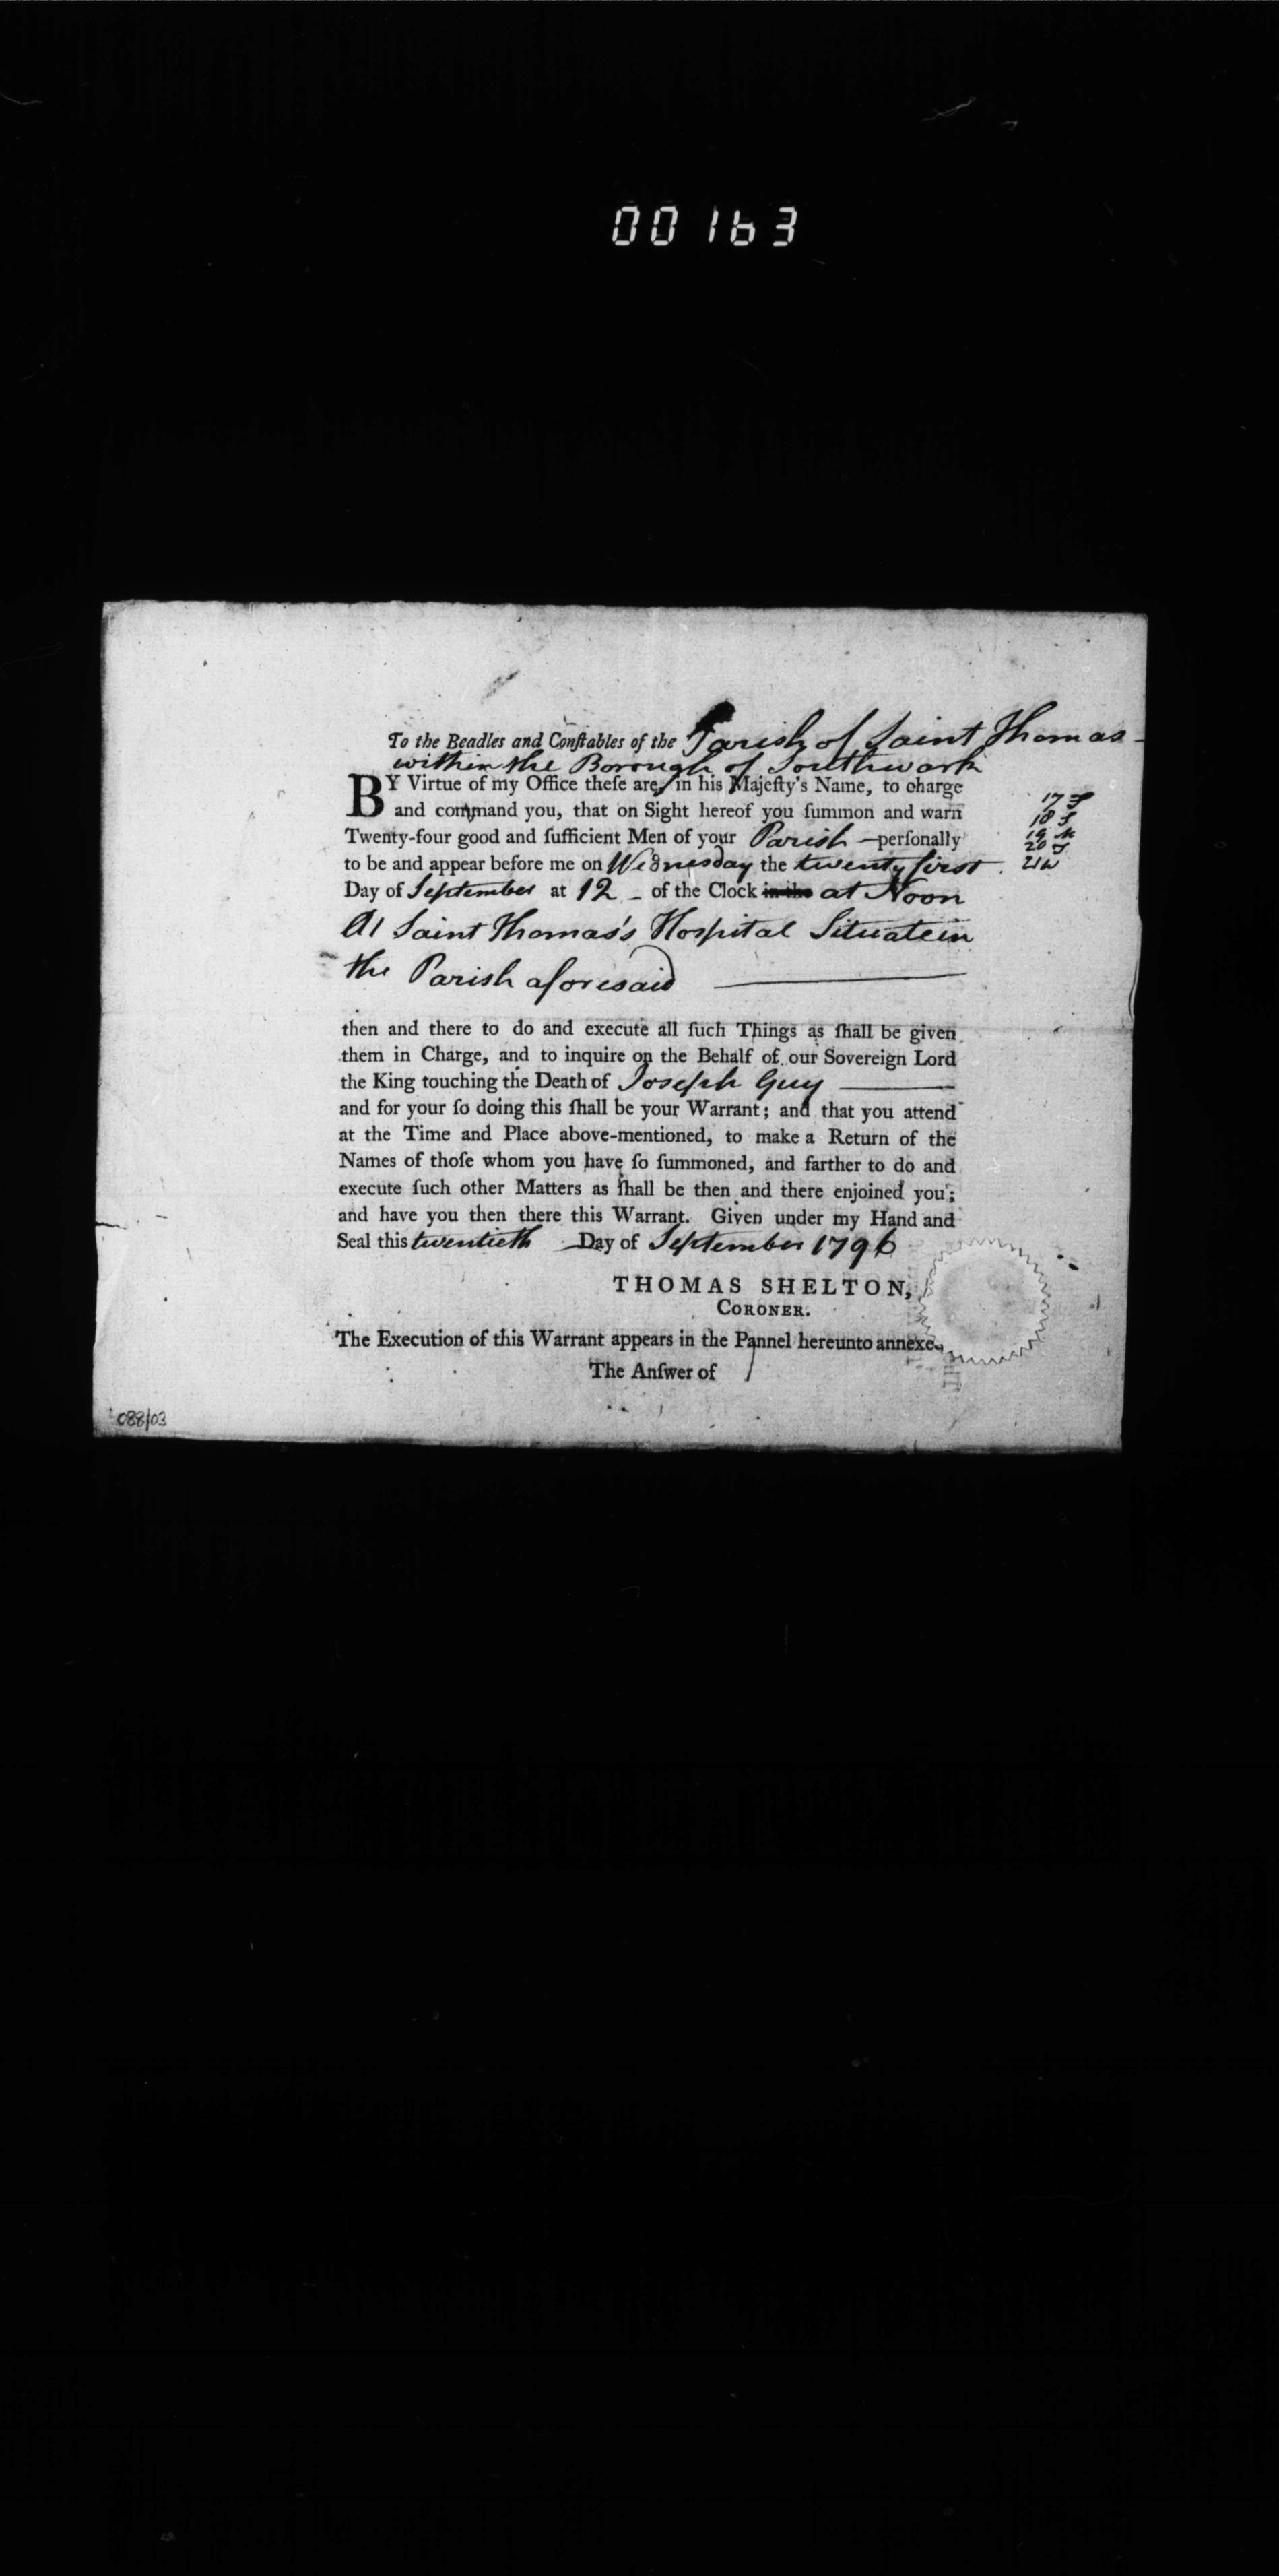 00163
To the Beadles and Conſtables of the Parish of Saint Thomas
within the Borough of Southwark
BY Virtue of my Office theſe are, in his Majeſty's Name, to charge
and command you, that on Sight hereof you ſummon and warn
Twenty-four good and ſufficient Men of your Parish - perſonally
to be and appear before me on Wednesday the twenty first
Day of September at 12 - of the Clock in the at Noon
At Saint Thomas's Hospital Situate in
the Parish aforesaid
then and there to do and execute all ſuch Things as ſhall be given
them in Charge, and to inquire on the Behalf of our Sovereign Lord
the King touching the Death of Joseph Guy
and for your ſo doing this ſhall be your Warrant; and that you attend
at the Time and Place above-mentioned, to make a Return of the
Names of thoſe whom you have ſo ſummoned, and farther to do and
execute ſuch other Matters as ſhall be then and there enjoined you;
and have you then there this Warrant. Given under my Hand and
Seal this twentieth Day of September 1796
THOMAS SHELTON,
CORONER.
The Execution of this Warrant appears in the Pannel hereunto annexe
The Anſwer of
17 S
18 S
19 M
20 T
21 W
088/03